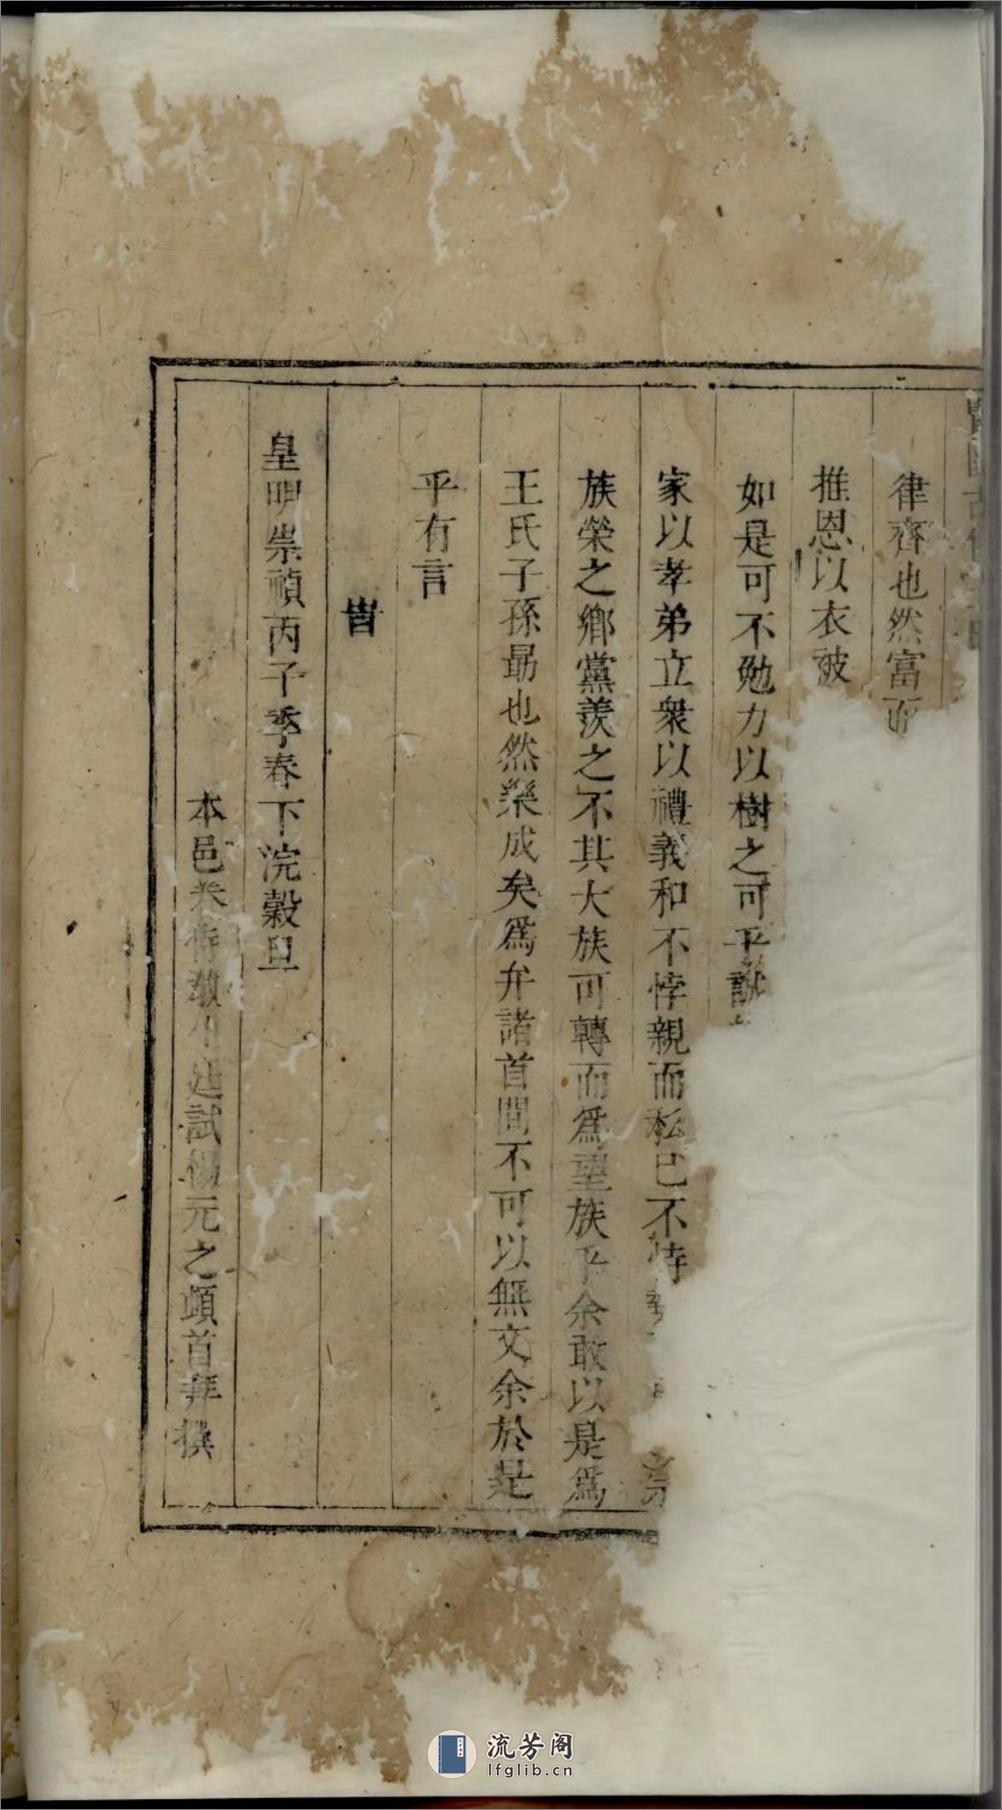 律齊也然富而
推恩以衣被
如是可不勉力以樹之可乎
家以孝弟立衆以禮義和不悖親而私已不恃
族榮之鄉黨羨之不其大族可轉而爲望族乎余敢以是爲
王氏子孫勗也然槳成矣爲弁諸首間不可以無文余於是
乎有言
旹
皇明崇禎丙子季春下浣穀旦
本邑眷侍教生廷試楊元之頓首拜撰
流芳阁
lfglib.cn